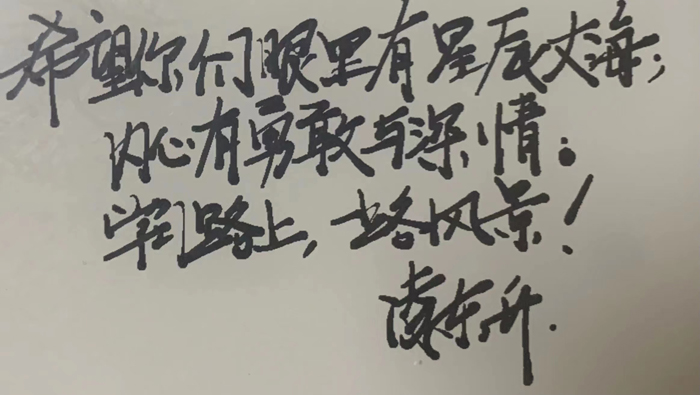 希望你们眼里有星辰大海;
内心有勇敢与深情;
学习路上,一路风景!
东升.